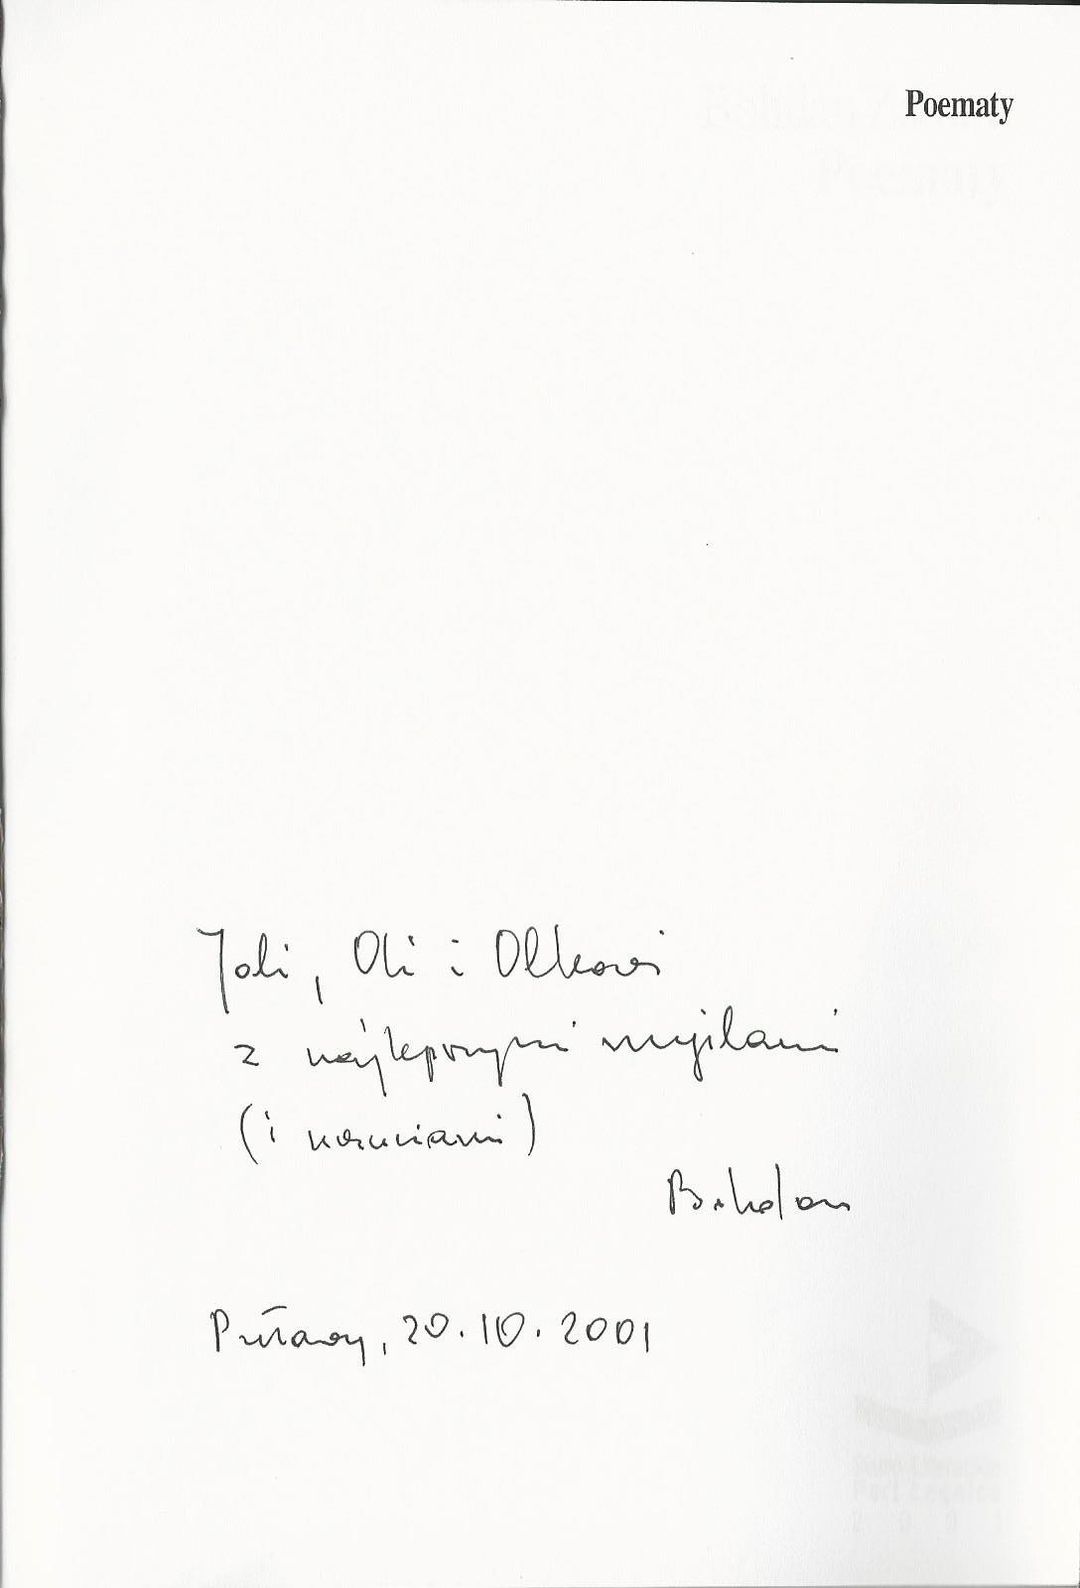 Poematy
Joli, Oli i Olkowi
z najlepszymi myślami
(i uczuciami)
Bohdan
Puławy, 20.10.2001